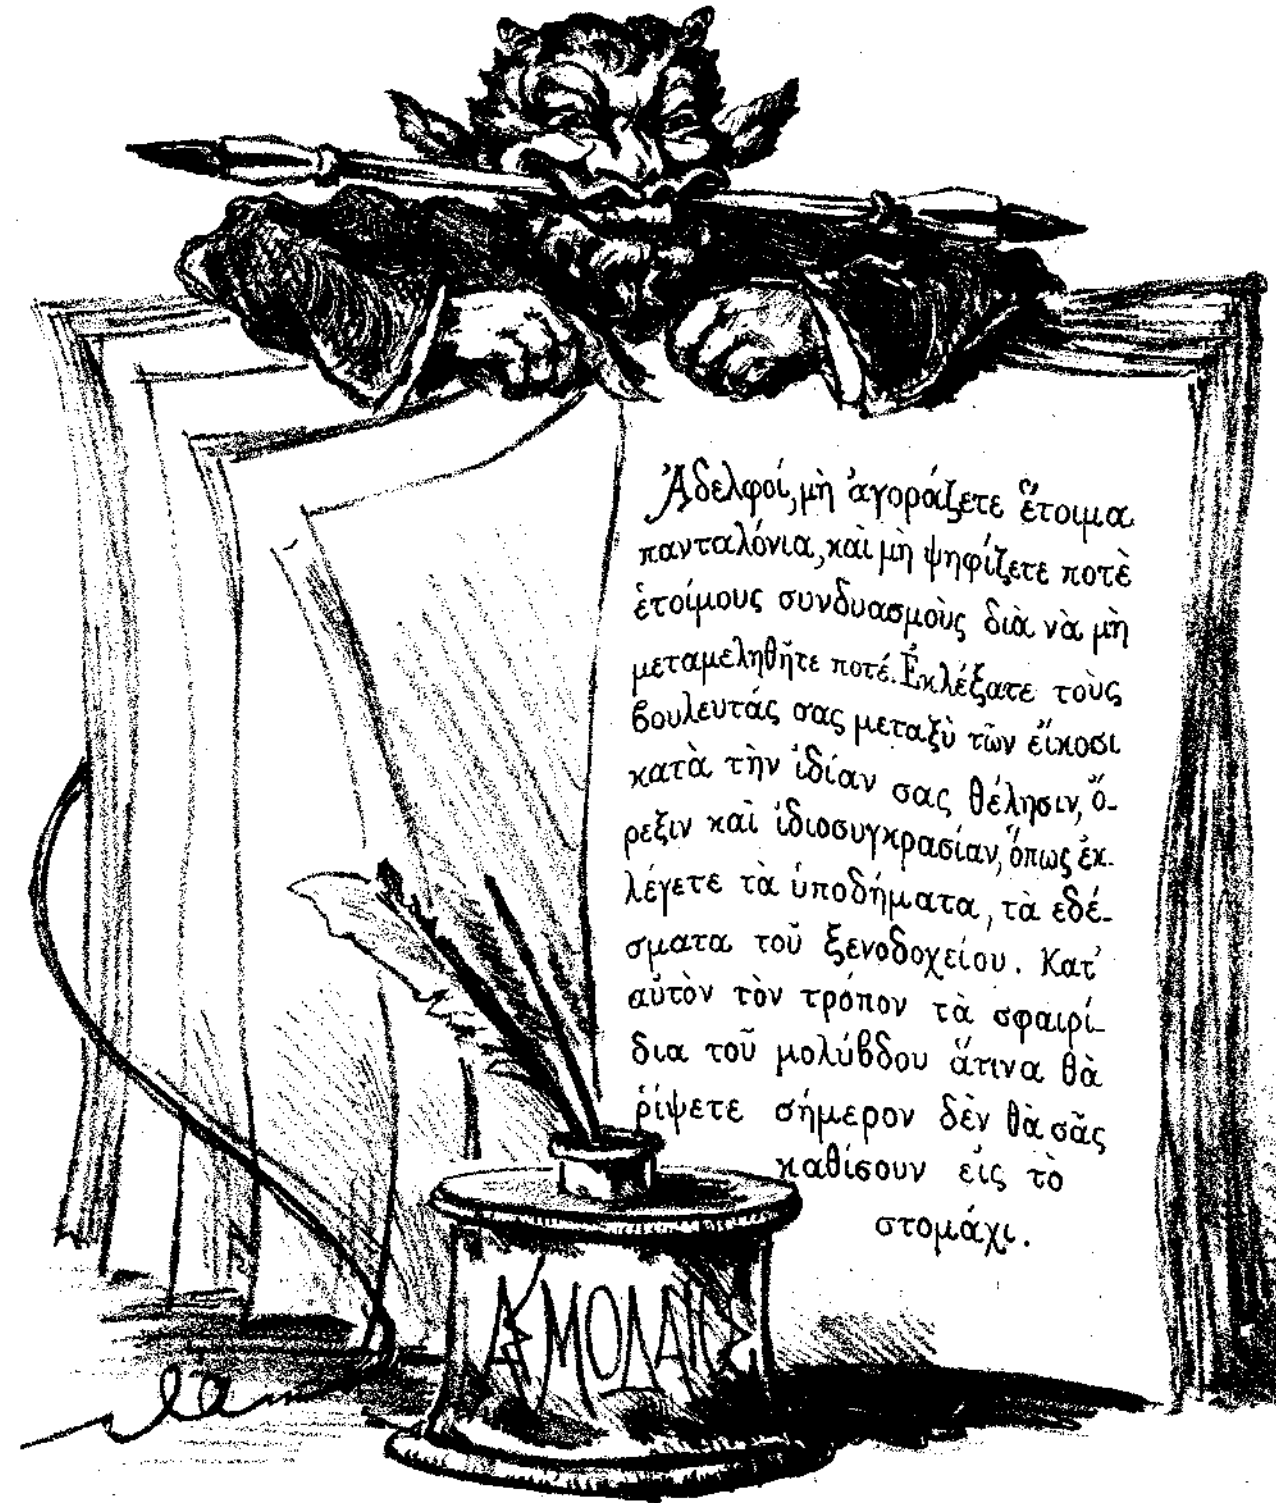 Ἀδελφοί, μὴ ἀγοράζετε ἕτοιμα
πανταλόνια, καὶ μὴ ψηφίζετε ποτὲ
ἑτοίμους συνδυασμοὺς διὰ νὰ μὴ
μεταμεληθῆτε ποτέ. Ἐκλέξατε τοὺς
βουλευτάς σας μεταξὺ τῶν εἴκοσι
κατὰ τὴν ἰδίαν σας θέλησιν, ὄ-
ρεξιν καὶ ἰδιοσυγκρασίαν, ὅπως ἐκ-
λέγετε τὰ ὑποδήματα, τὰ εδέ-
σματα τοῦ ξενοδοχείου. Κατ'
αὐτὸν τὸν τρόπον τὰ σφαιρί-
δια τοῦ μολύβδου ἅτινα θὰ
ῥίψετε σήμερον δὲν θὰ σᾶς
καθίσουν εἰς τὸ
στομάχι.
ΑΣΜΟΔΑΙΟΣ